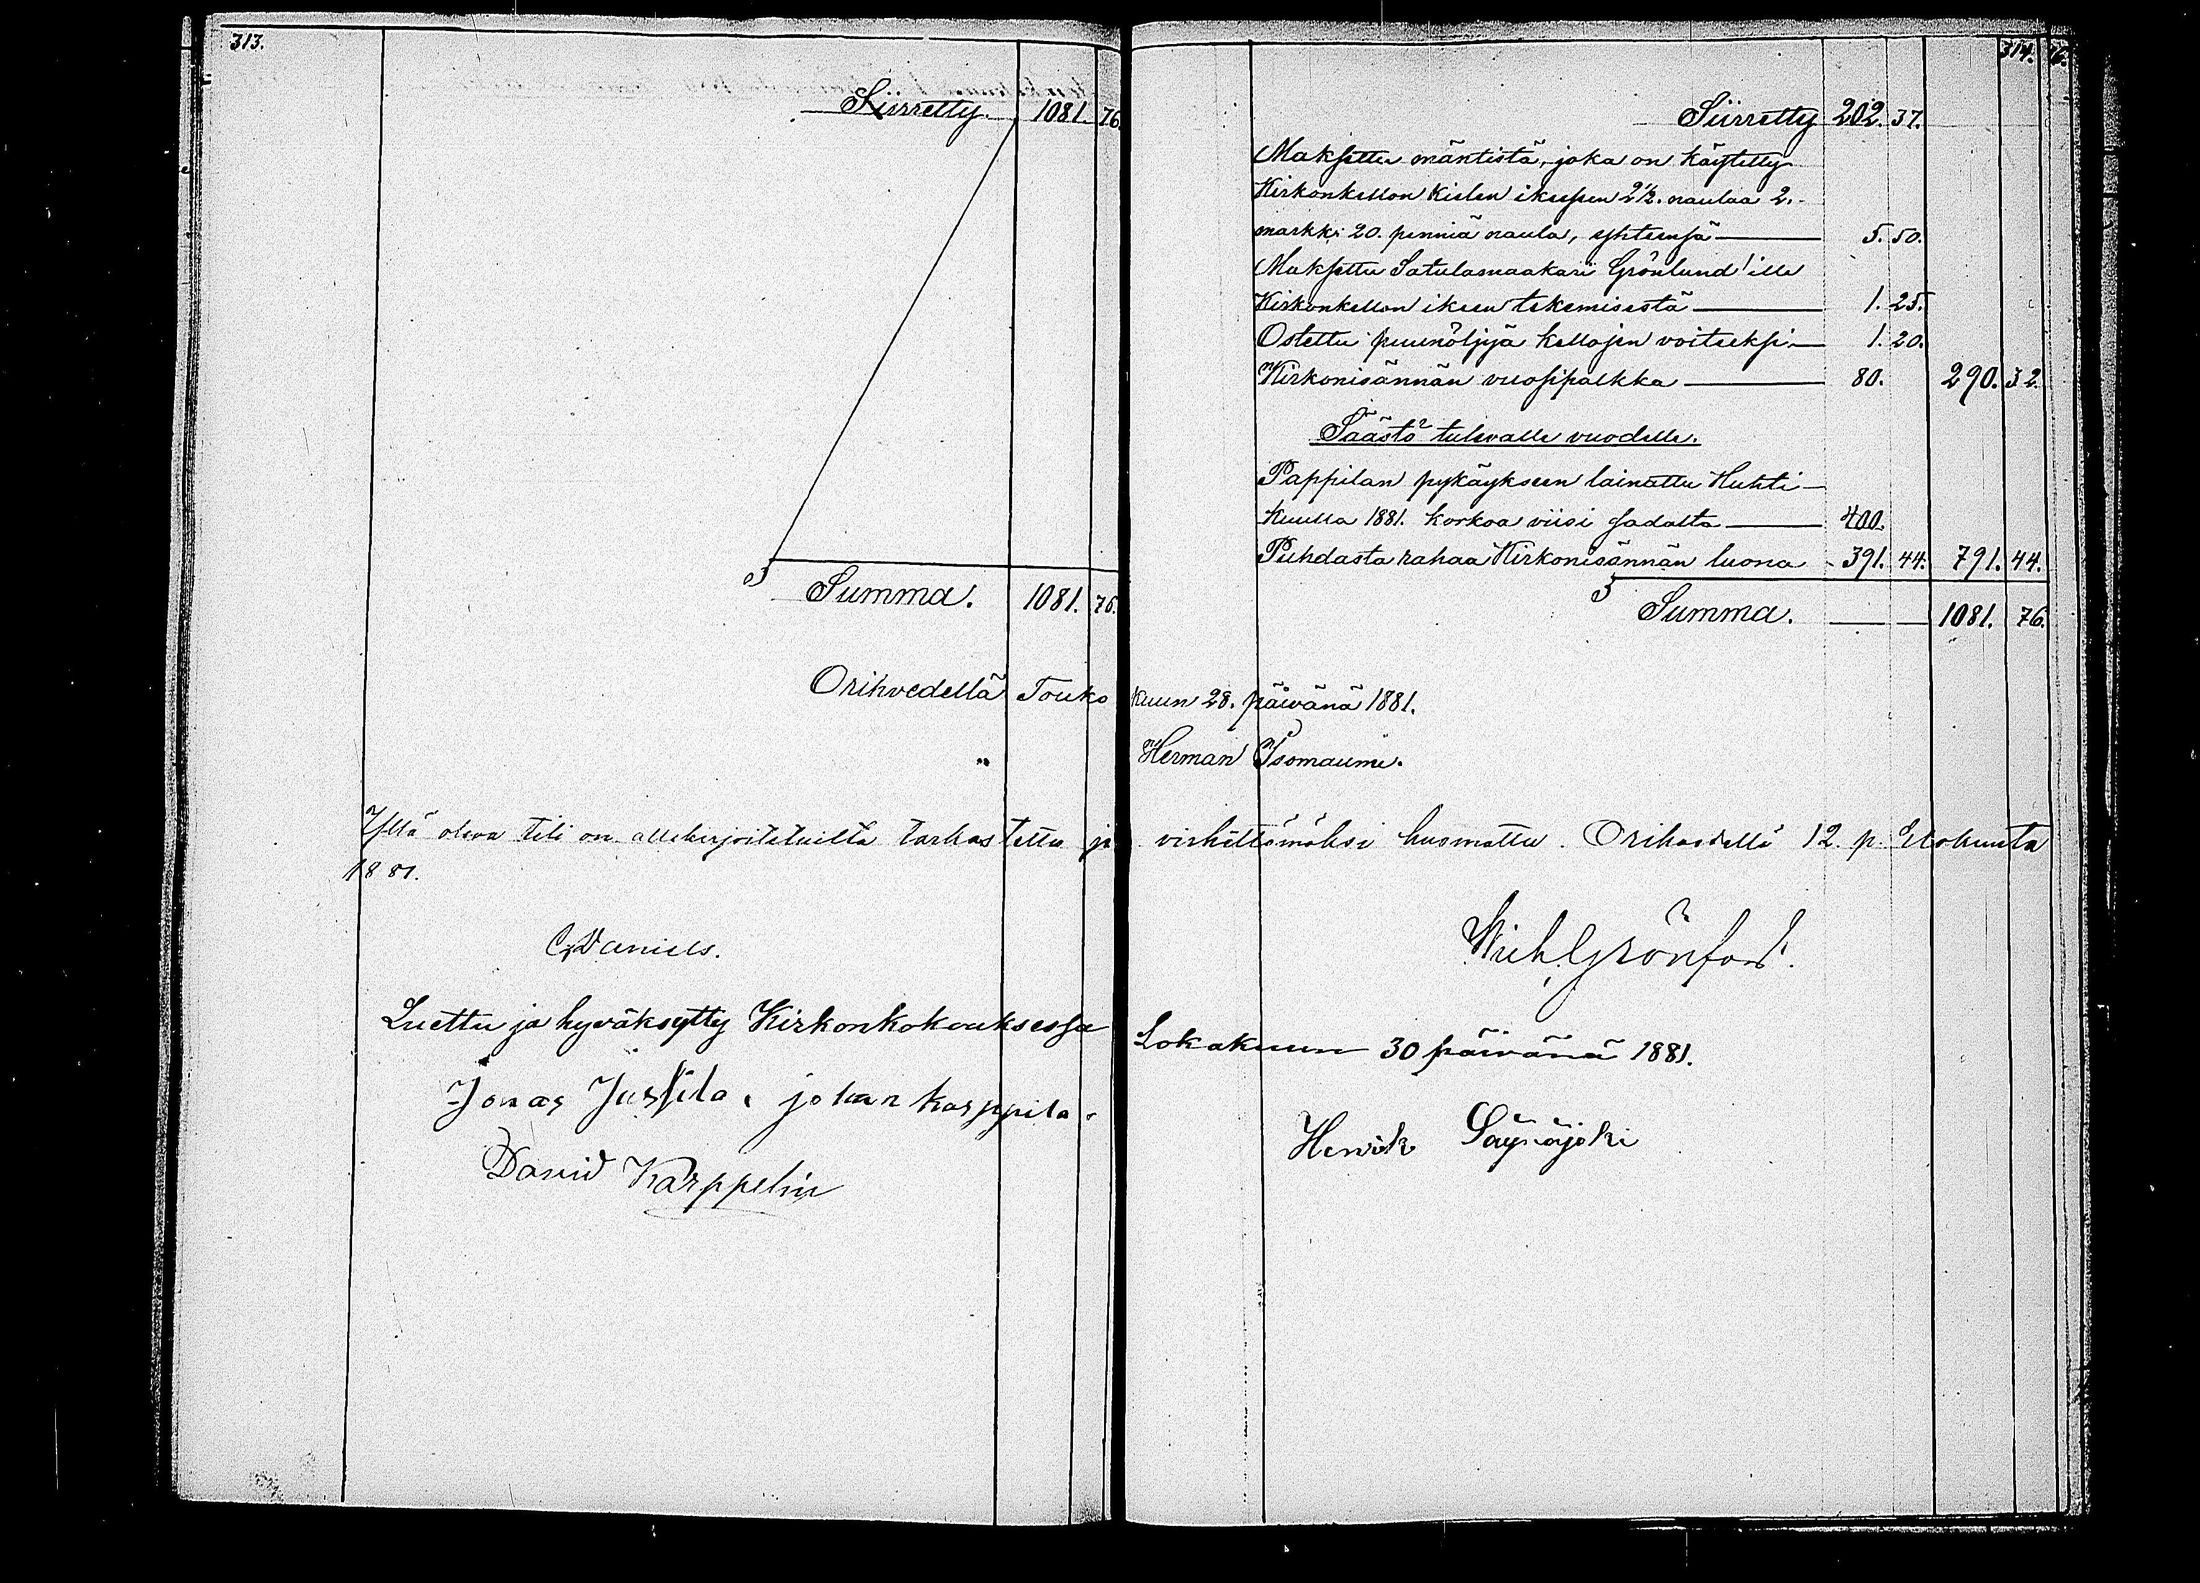 313.
Siirretty. 1081. 76.
Summa. 1081. 76.
314.
Siirretty 202. 37.
Maksettu mäntistä, joka on käytetty
Kirkonkellon kielen ikeesen 2 1/2. naulaa 2.
markk: 20. penniä naula, yhteensä 5. 50.
Maksettu Satulamaakari Grönlund'ille
Kirkonkellon ikeen tekemisestä 1. 25.
Ostettu puunöljyä kellojen voiteeksi 1. 20.
Kirkonisännän vuosipalkka 80. 290. 32.
Säästö tulevalle vuodelle.
Pappilan pykäykseen lainattu Huhti-
kuulla 1881. korkoa viisi sadalta 400.
Puhdasta rahaa Kirkonisännän luona 391. 44. 791. 44.
Summa. 1081. 76.
Orihvedellä Toukokuun 28. päivänä 1881.
Herman Isomaumi.
Yllä oleva tili on allekirjoitetuilta tarkastettu ja virhettömäksi huomattu. Orihvedellä 12. p. Elokuuta
1881.
C. Daniels. Wilh. Grönfors.
Luettu ja hyväksytty Kirkonkokouksessa Lokakuun 30 päivänä 1881.
Jonas Jussila. johan karppila.
Henrik Säynäjoki
David Karppelin